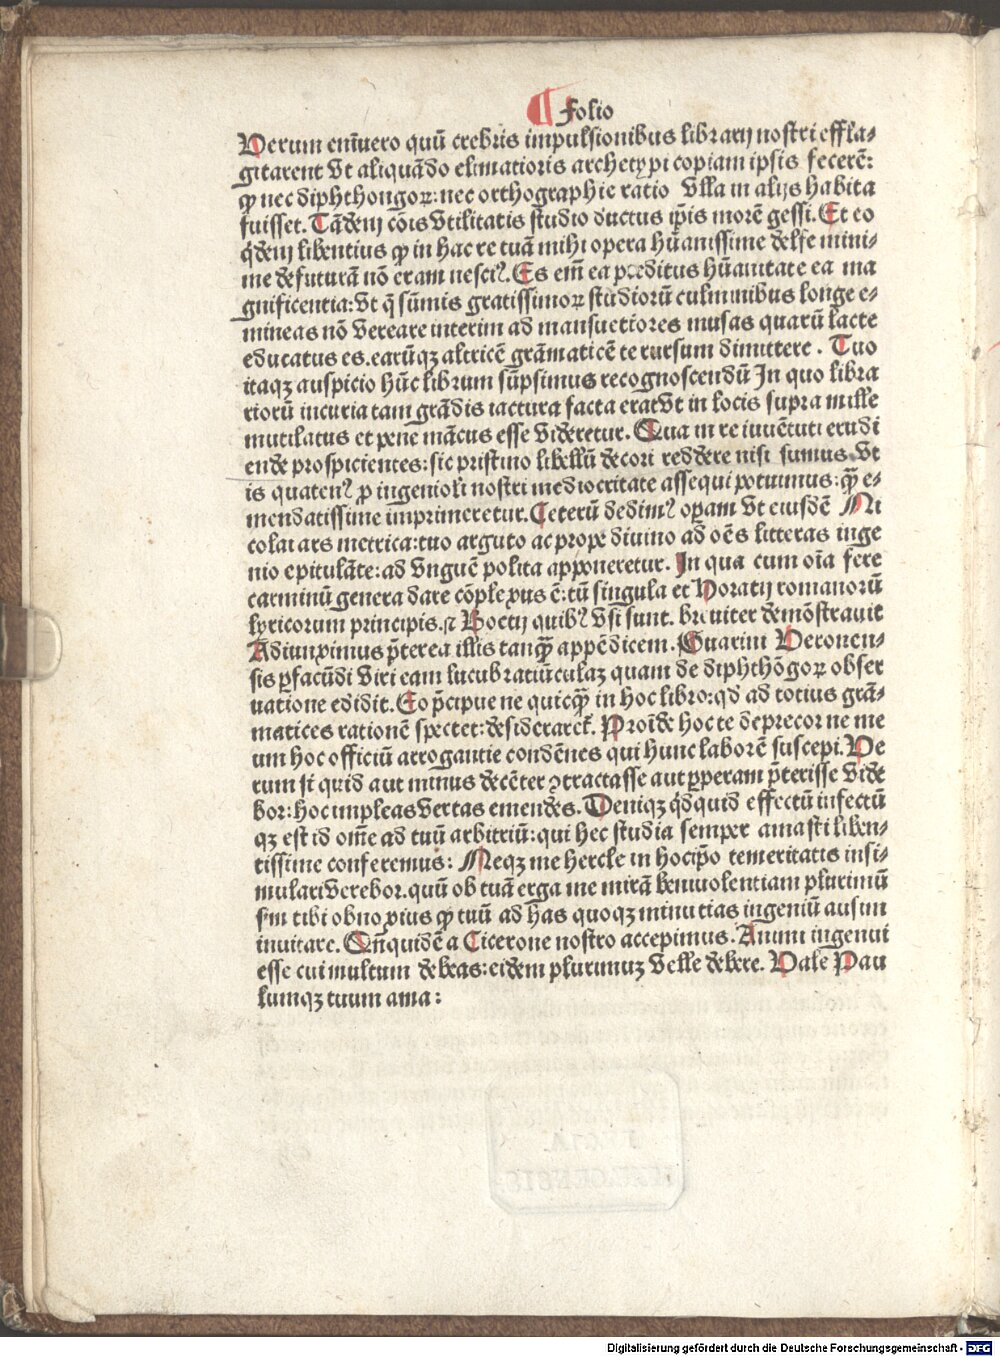 ¶ Folio
Verum enīuero quū crebris impulsionibus librarij nostri effla-
gitarent Vt aliquādo elimatioris archetypi copiam ipsis facerē:
ꝙ nec diphthongoꝝ: nec orthographie ratio Vlla in alijs habita
fuisset. Tādem cōis Vtilitatis studio ductus ip̄is morē gessi. Et eo
q̇dem libentius ꝙ in hac re tuā mihi opera hūanissime deesse mini-
me defuturā nō eram nesciꝰ. Es em̄ ea p̄ditus hūanitate ea ma
gnificentia: Vt q̄ sūmis gratissimoꝝ studiorū culminibus longe e-
mineas nō Vereare interim ad mansuetiores musas quarū lacte
educatus es. earūqꝫ altricē grāmaticē te rursum dimittere. Tuo
itaqꝫ auspicio hūc librum sūpsimus recognoscendū In quo libra
riorū incuria tam grādis iactura facta erat Vt in locis supra mille
mutilatus et pene mācus esse Videretur. Qua in re iuuētuti erudi
ende prospicientes: sic pristino libellū decori reddere nisi sumus Vt
is quatenꝰ ꝓ ingenioli nostri mediocritate assequi potuimus: q̄ e-
mendatissime imprimeretur. Ceterū dedimꝰ operam Vt eiusdē Ni
colai ars metrica: tuo arguto ac prope diuino ad oēs litteras inge
nio epitulāte: ad Vnguē polita apponeretur. In qua cum oīa fere
carminū genera dare cōplexus ē: tū singula et Horatij romanorū
lyricorum principis. ⁊ Boetij quibꝰ Vsi sunt. breuiter demōstrauit
Adiunximus p̄terea illis tanꝙ̄ appēdicem. Guarini Veronen-
sis ꝑfacūdi Viri eam lucubratiūculaꝫ quam de diphthōgoꝝ obser
uatione edidit. Eo p̄cipue ne quicꝙ̄ in hoc libro: qd̄ ad totius grā-
matices rationē spectet: desideraret̄. Proīde hoc te deprecor ne me
um hoc officiū arrogantie condēnes qui hunc laborē suscepi. Ve
rum si quid aut minus decēter ꝯtractasse aut ꝑperam p̄terisse Vide
bor: hoc impleas Vertas emendes. Deniqꝫ q̇dquid effectū infectū
qꝫ est id om̄e ad tuū arbitriū: qui hec studia semper amasti liben-
tissime conferemus: Neqꝫ me hercle in hoc ip̄o temeritatis insi-
mulari Verebor. quū ob tuā erga me mirā beniuolentiam plurimū
sim tibi obnoxius ꝙ tuū ad has quoqꝫ minutias ingeniū ausim
inuitare. Qn̄quidē a Cicerone nostro accepimus. Animi ingenui
esse cui multum debeas: eidem plurimuꝫ Velle debere. Vale Pau
lumqꝫ tuum ama:
Digitalisierung gefördert durch die Deutsche Forschungsgemeinschaft - DFG